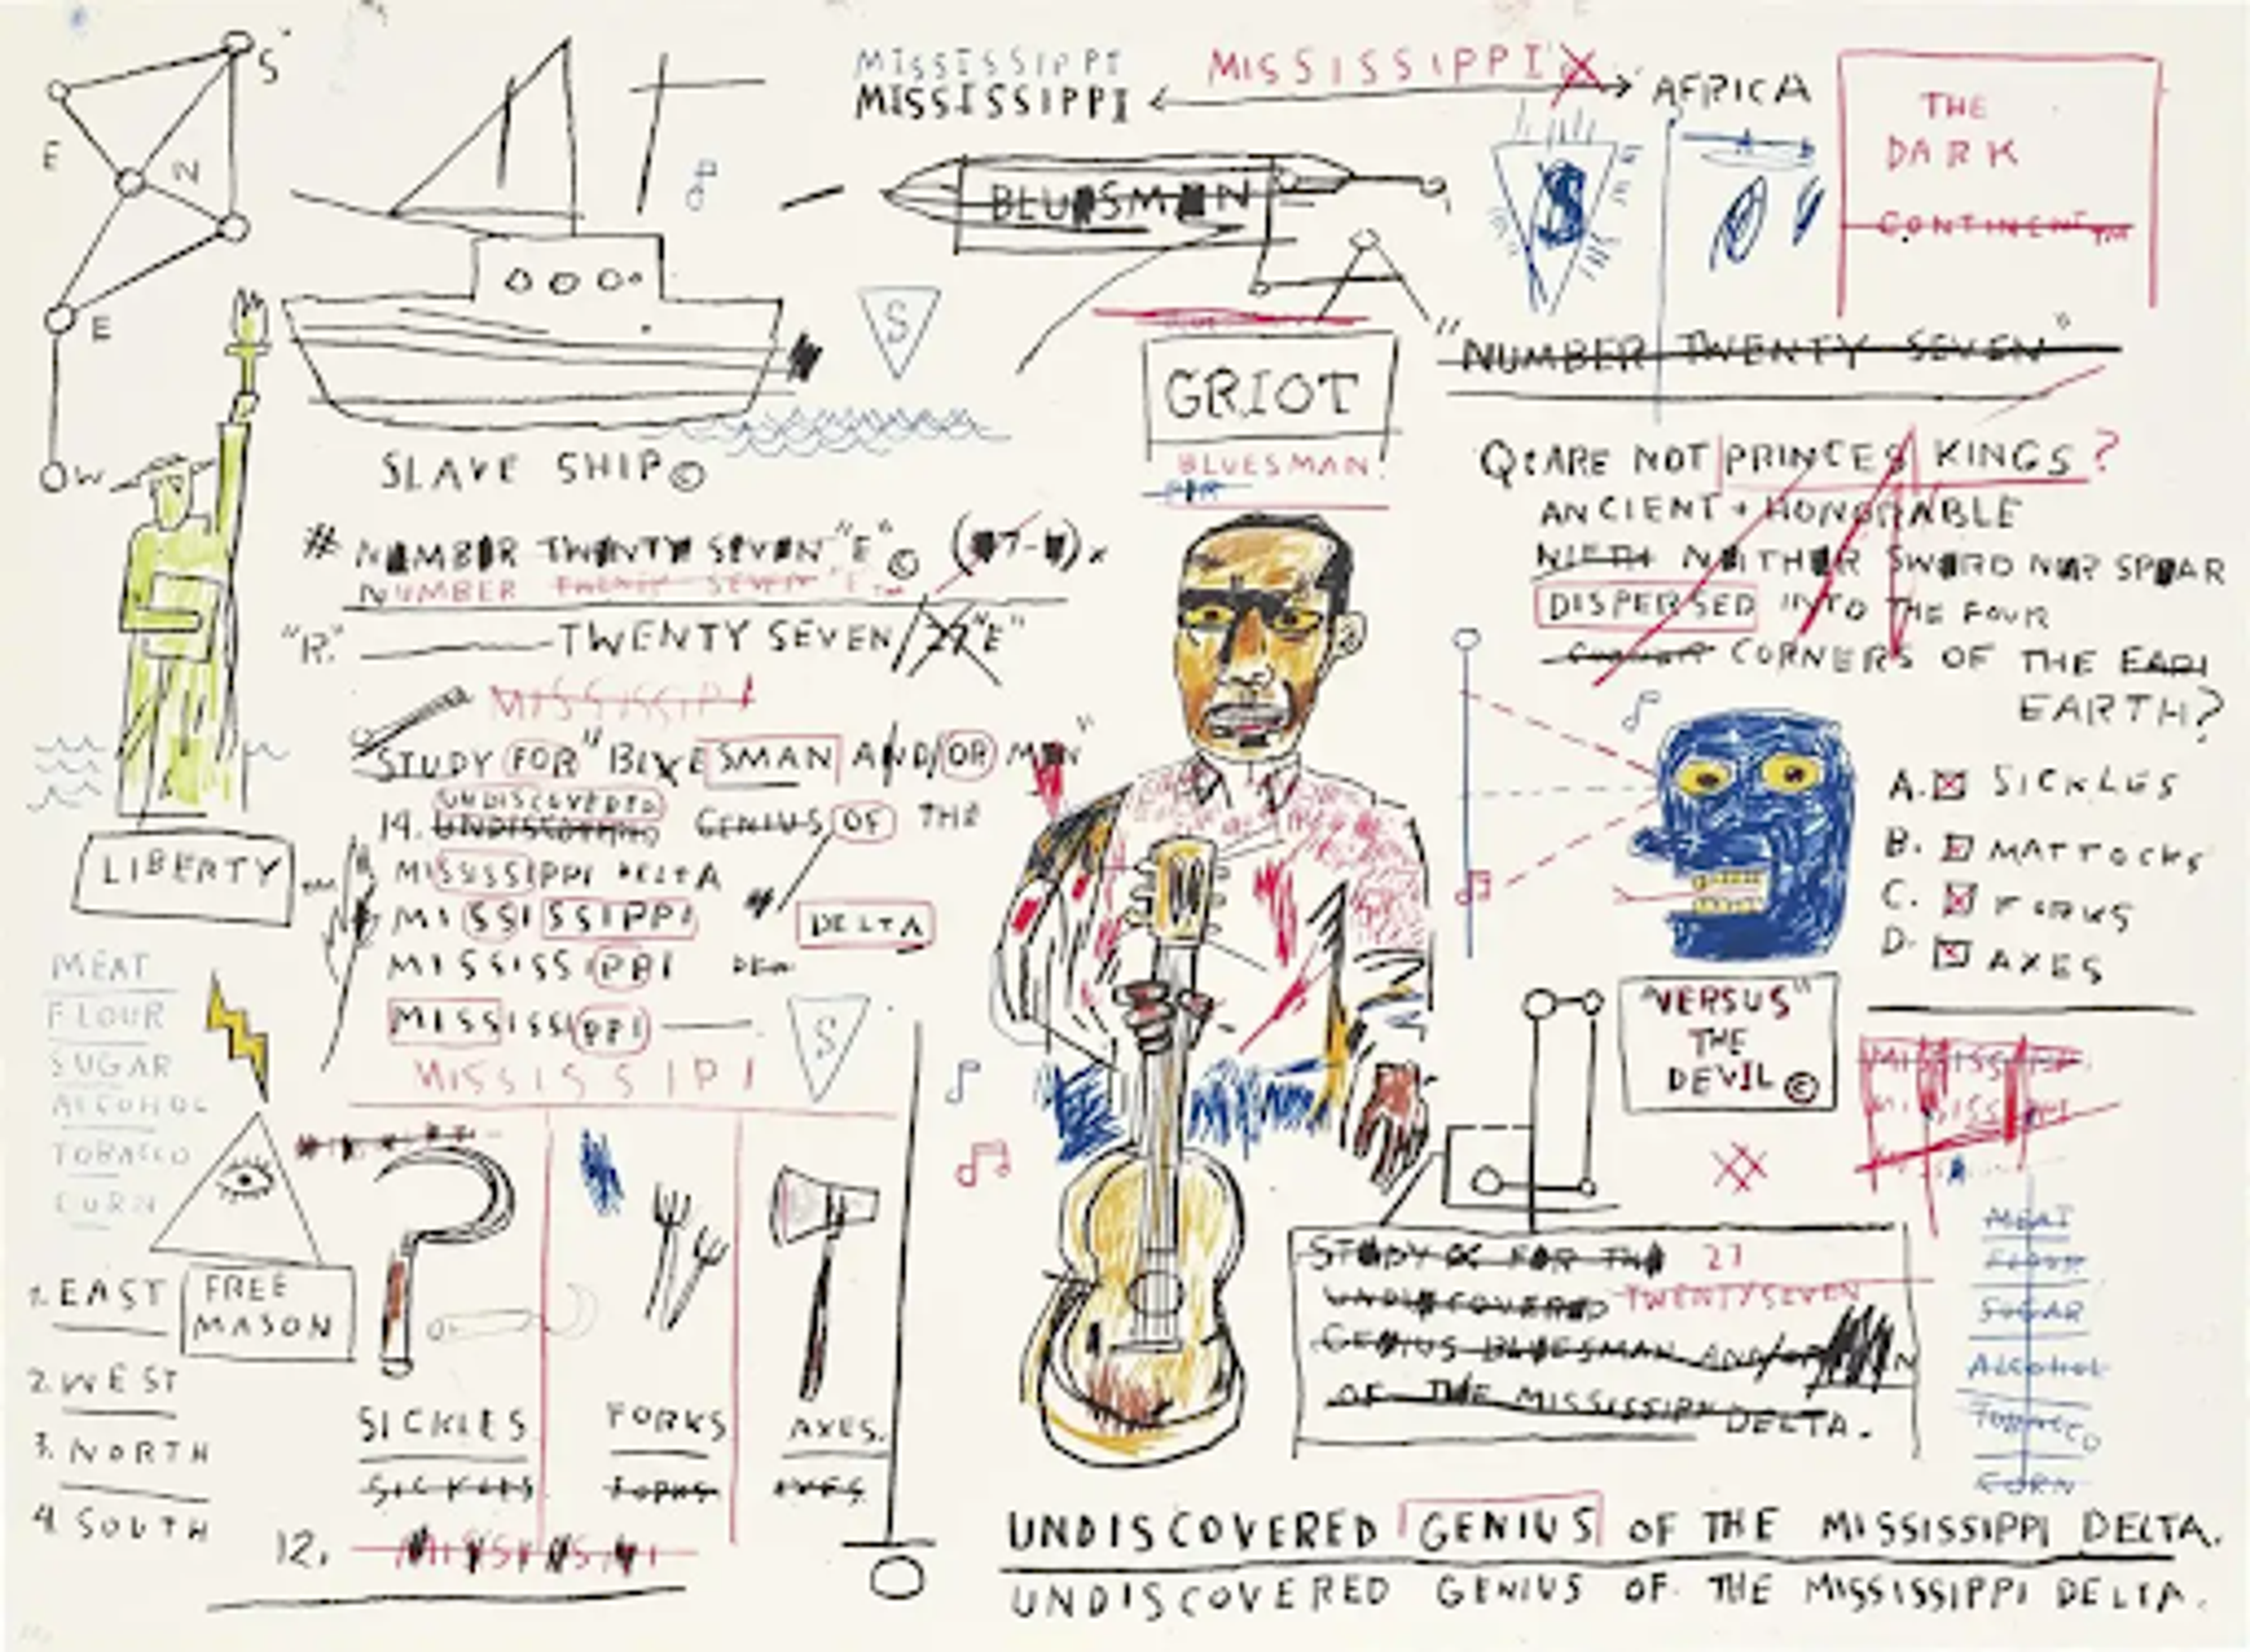 S
E
N
E
W
MISSISSIPPI
MISSISSIPPI
MISSISSIPPI
AFRICA
THE
DARK
CONTINENT TM
BLUESMAN
$
S
"NUMBER TWENTY SEVEN"
GRIOT
BLUESMAN.
SLAVE SHIP©
# NUMBER TWENTY SEVEN "E" ©
NUMBER TWENTY SEVEN "E TM
"R." TWENTY SEVEN/27"E"
Q: ARE NOT PRINCES KINGS?
ANCIENT + HONORABLE
NIETH NEITHER SWORD NOR SPEAR
DISPERSED INTO THE FOUR
CORNERS OF THE EARI
EARTH?
MISSISSIPI
STUDY FOR "BLUESMAN AND/OR MEN"
UNDISCOVERED
14. UNDISCOVERED GENIUS OF THE
MISSISSIPPI DELTA
MISSISSIPPI
DELTA
MISSISSIPPI
MISSISSIPPI
S
MISSISSIPI
LIBERTY
MEAT
FLOUR
SUGAR
ALCOHOL
TOBACCO
CORN
FREE
MASON
1. EAST
2. WEST
3. NORTH
4. SOUTH
SICKLES
SICKLES
FORKS
FORKS
AXES.
AXES
12.
A. SICKLES
B. MATTOCKS
C. FORKS
D. AXES
"VERSUS"
THE
DEVIL ©
STUDY OC FOR THE 27
UNDISCOVERED TWENTYSEVEN
GENIUS BLUESMAN AND/OR
OF THE MISSISSIPPI DELTA.
MEAT
FLOUR
SUGAR
ALCOHOL
TOBACCO
CORN
UNDISCOVERED GENIUS OF THE MISSISSIPPI DELTA.
UNDISCOVERED GENIUS OF THE MISSISSIPPI DELTA.